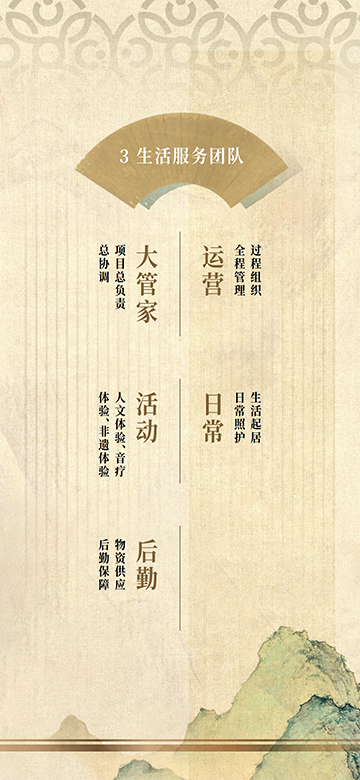 3 生活服务团队
运营
过程组织
全程管理
大管家
项目总负责
总协调
日常
生活起居
日常照护
活动
人文体验、音疗
体验、非遗体验
后勤
物资供应
后勤保障